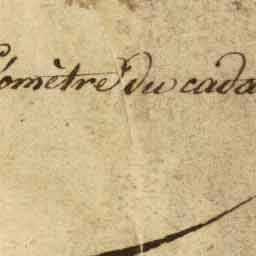 éomètre du cada